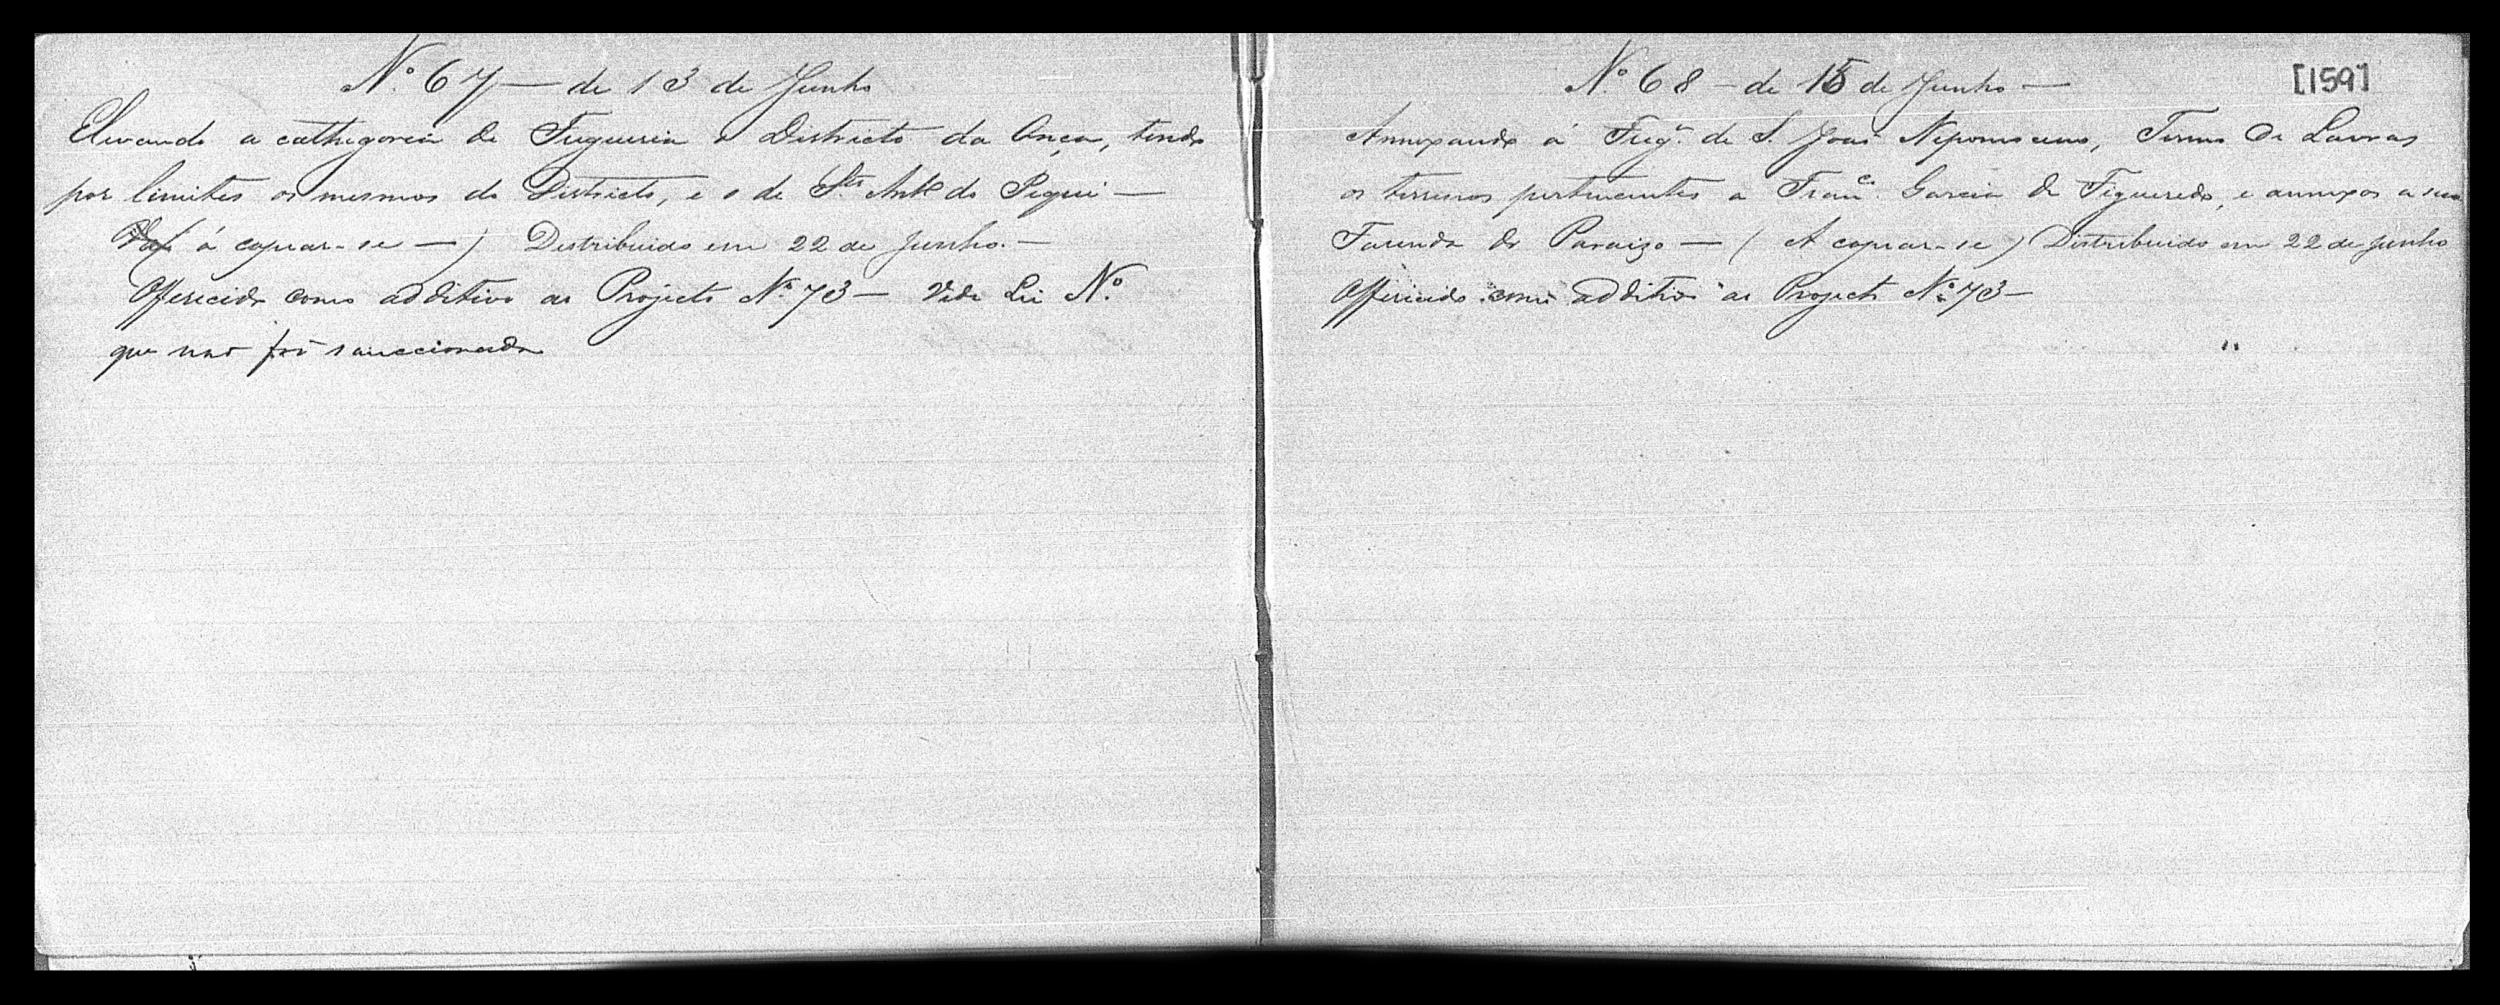 Nº 67 — de 13 de Junho
Elevando a cathegoria de Freguesia o Districto da Onça, tendo
por limites os mesmos do Districto, e o de Sto. Antº do Piqui —
á copiar-se —) Distribuido em 22 de Junho. —
Offerecido como additivo ao Projecto Nº 73 — Vide Lei Nº.
que não foi sanccionada
Nº 68 — de 15 de Junho — [159]
Annexando á Freg.ª de S. João Nepomuceno, Termo de Lavras
os terrenos pertencentes a Franc.º Garcia de Figueredo, e annexos a sua
Fazenda do Paraizo — (A copiar-se) Distribuido em 22 de Junho
Offerecido "como additivo" ao Projecto Nº 73 —